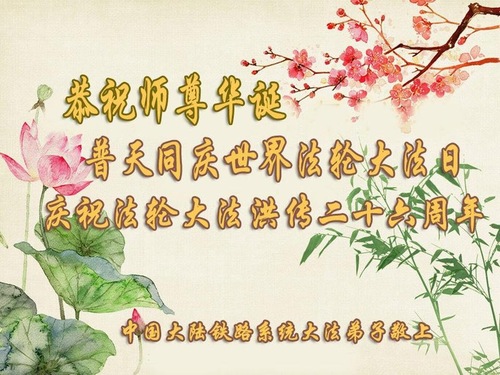 恭祝师尊华诞
普天同庆世界法轮大法日
庆祝法轮大法洪传二十六周年
中国大陆铁路系统大法弟子敬上